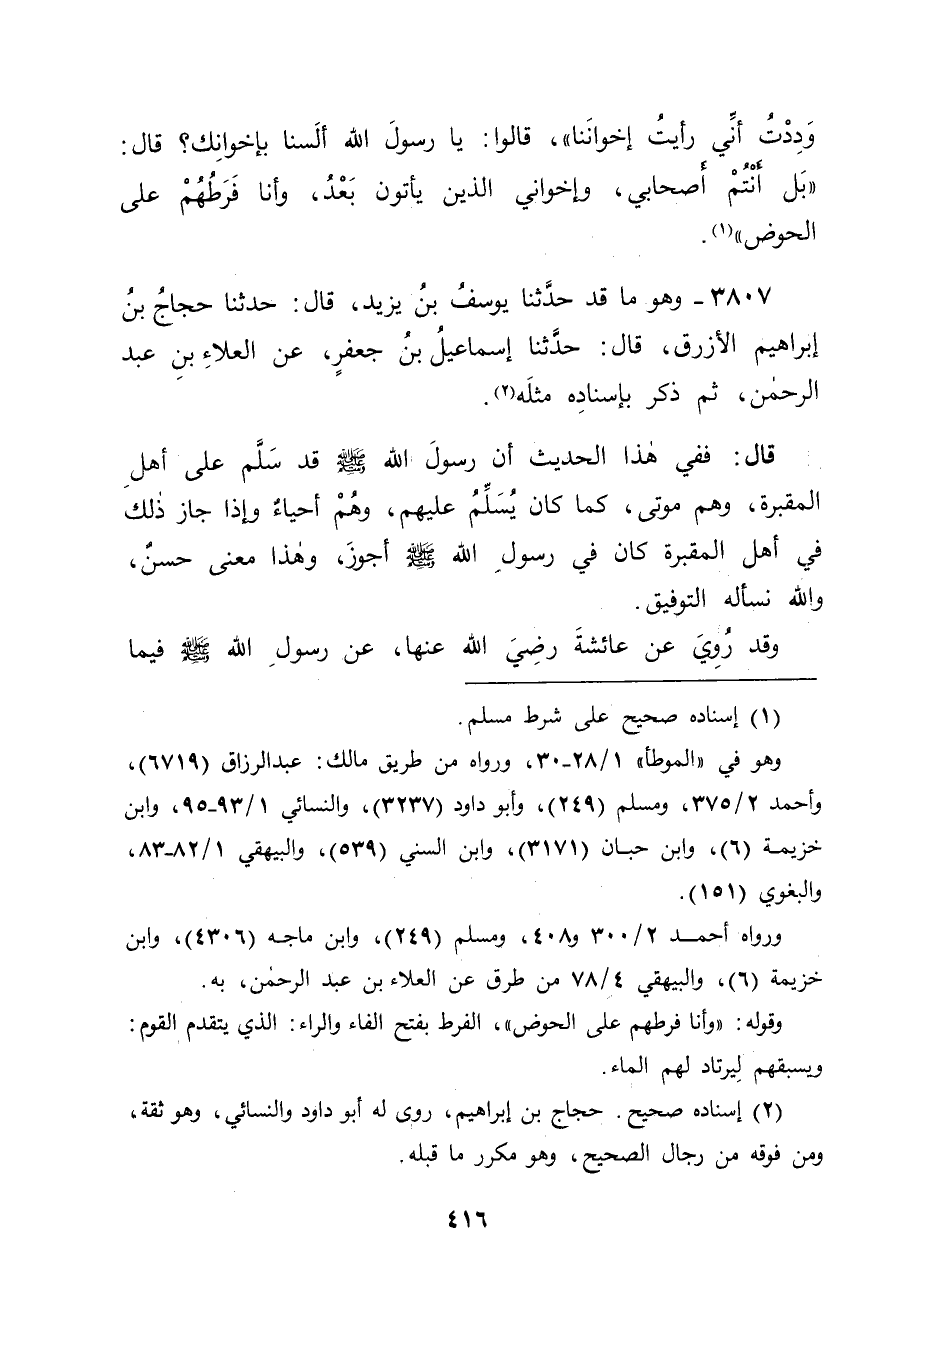 وَدِدْتُ أنِّي رأيتُ إخوانَنا»، قالوا: يا رسولَ الله ألَسنا بإخوانِك؟ قال:
«بَل أَنْتُمْ أَصحابي، وإخواني الذين يأتون بَعْدُ، وأنا فَرَطُهُمْ على
الحوض»(١).
٣٨٠٧ـ وهو ما قد حدَّثنا يوسفُ بنُ يزيد، قال: حدثنا حجاجُ بنُ
إبراهيم الأزرق، قال: حدَّثنا إسماعيلُ بنُ جعفرٍ، عن العلاءِ بنِ عبد
الرحمٰن، ثم ذكر بإسنادِه مثلَه(٢).
قال: ففي هٰذا الحديث أن رسولَ الله ﷺ قد سَلَّم على أهلِ
المقبرة، وهم موتى، كما كان يُسَلِّمُ عليهم، وهُمْ أحياءٌ وإذا جاز ذٰلك
في أهل المقبرة كان في رسولِ الله ﷺ أجوزَ، وهٰذا معنى حسنٌ،
والله نسأله التوفيق.
وقد رُوِيَ عن عائشةَ رضِيَ الله عنها، عن رسولِ الله ﷺ فيما
(١) إسناده صحيح على شرط مسلم.
وهو في «الموطأ» ٢٨/١ـ٣٠، ورواه من طريق مالك: عبدالرزاق (٦٧١٩)،
وأحمد ٣٧٥/٢، ومسلم (٢٤٩)، وأبو داود (٣٢٣٧)، والنسائي ٩٣/١ـ٩٥، وابن
خزيمة (٦)، وابن حبان (٣١٧١)، وابن السني (٥٣٩)، والبيهقي ٨٢/١ـ٨٣،
والبغوي (١٥١).
ورواه أحمد ٣٠٠/٢ و٤٠٨، ومسلم (٢٤٩)، وابن ماجه (٤٣٠٦)، وابن
خزيمة (٦)، والبيهقي ٧٨/٤ من طرق عن العلاء بن عبد الرحمٰن، به.
وقوله: «وأنا فرطهم على الحوض»، الفرط بفتح الفاء والراء: الذي يتقدم القوم:
ويسبقهم لِيرتاد لهم الماء.
(٢) إسناده صحيح. حجاج بن إبراهيم، روى له أبو داود والنسائي، وهو ثقة،
ومن فوقه من رجال الصحيح، وهو مكرر ما قبله.
٤١٦